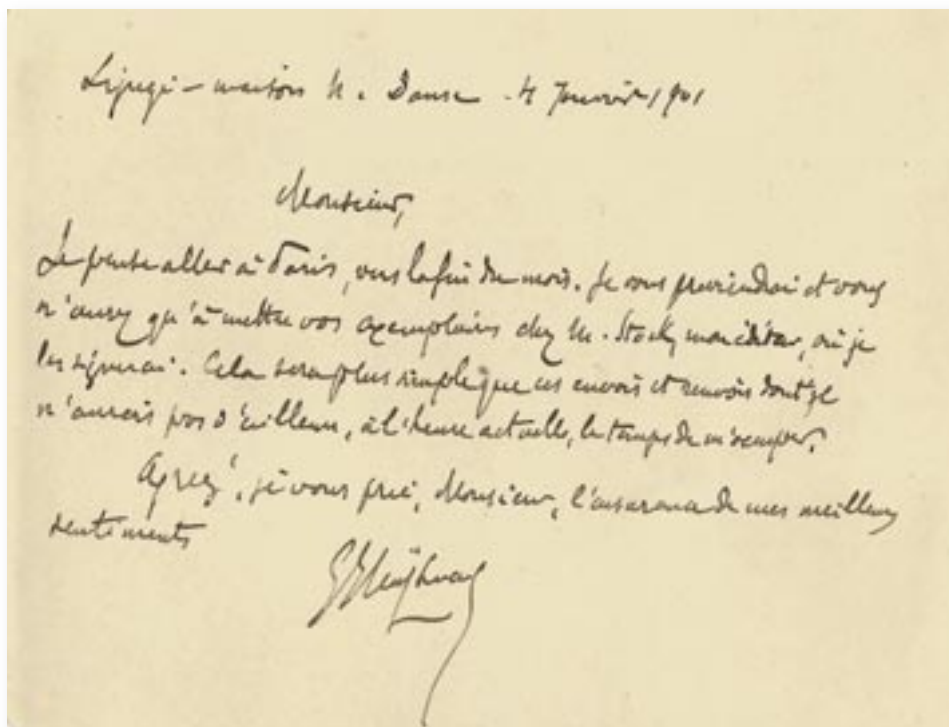 Ligugé - maison N. Dame - 4 Janvier 1901
Monsieur,
Je pense aller à Paris, vers la fin du mois. Je vous préviendrai et vous
n'aurez qu'à mettre vos exemplaires chez M. Stock, mon éditeur, où je
les signerai. Cela sera plus simple que ces envois et renvois dont je
n'aurais pas d'ailleurs, à l'heure actuelle, le temps de m'occuper.
Agréez, je vous prie, Monsieur, l'assurance de mes meilleurs
sentiments
G Huysmans